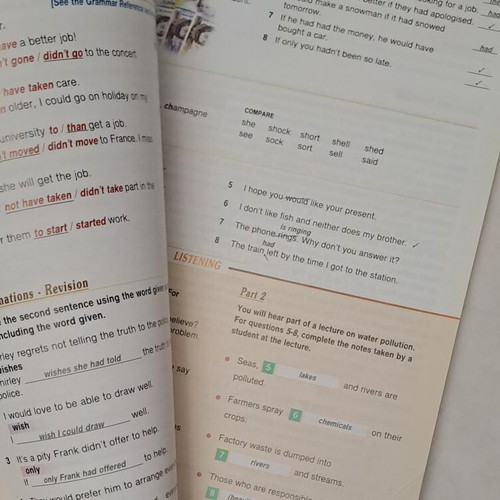 [See the Grammar Reference
ave a better job!
n't gone / didn't go to the concert
have taken care.
older, I could go on holiday on my
university to / than get a job.
't moved / didn't move to France. I miss
she will get the job.
not have taken / didn't take part in the
r them to start / started work.
mations - Revision
the second sentence using the word given
including the word given.
rley regrets not telling the truth to the police.
wishes
hirley wishes she had told the truth
police.
I would love to be able to draw well.
wish
I wish I could draw well.
3 It's a pity Frank didn't offer to help.
only
If only Frank had offered to help.
would prefer him to arrange
better if they had apologised.
make a snowman if it had snowed
tomorrow.
7 If he had had the money, he would have
bought a car.
had
8 If only you hadn't been so late.
✓
✓
champagne
COMPARE
she shock short shell shed
see sock sort sell said
5 I hope you would like your present.
6 I don't like fish and neither does my brother. ✓
is ringing
7 The phone rings. Why don't you answer it?
had
8 The train left by the time I got to the station.
LISTENING
For
believe?
problem.
say
Part 2
You will hear part of a lecture on water pollution.
For questions 5-8, complete the notes taken by a
student at the lecture.
• Seas, 5 lakes and rivers are
polluted.
• Farmers spray 6 chemicals on their
crops.
• Factory waste is dumped into
7 rivers and streams.
• Those who are responsible
8